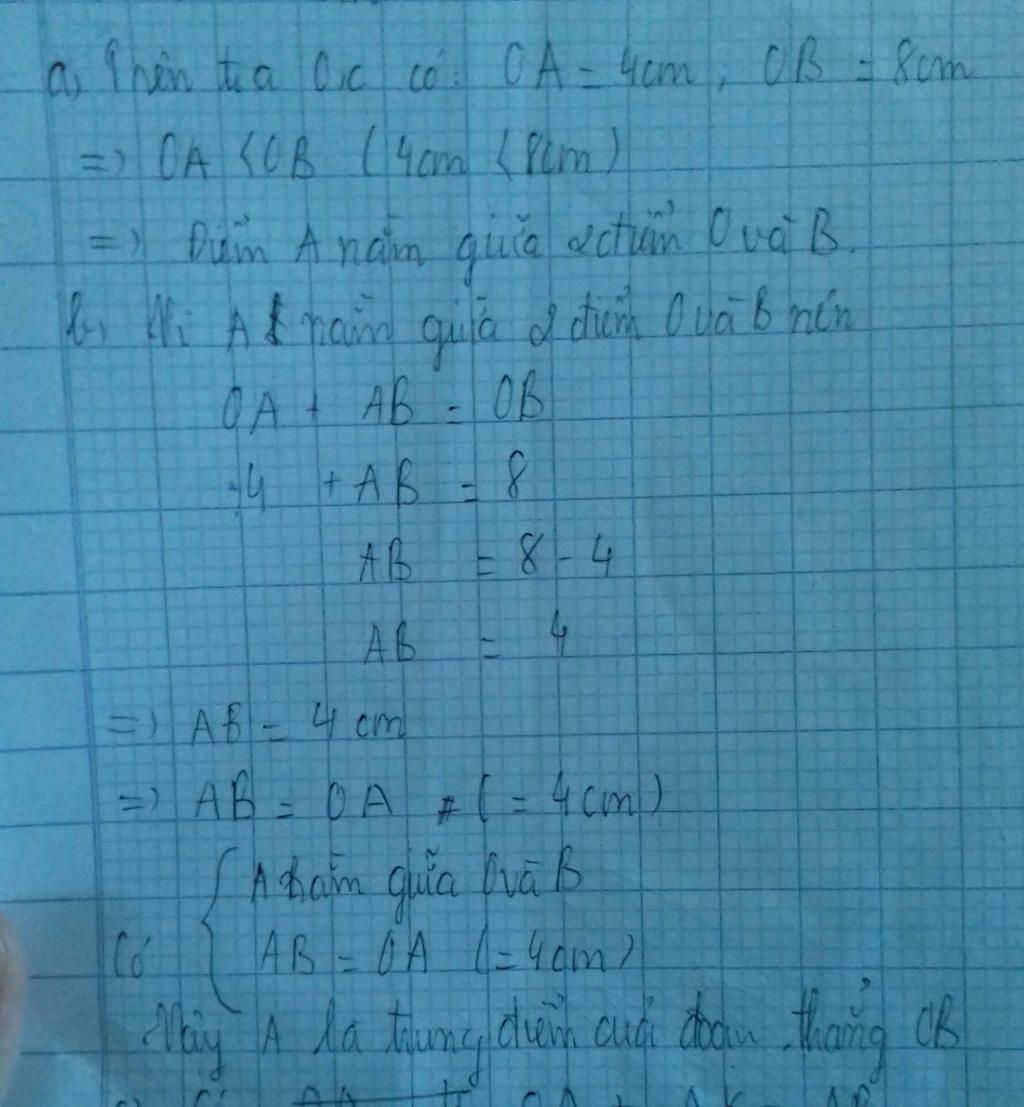 a, Trên tia Ox có: OA = 4cm, OB = 8cm
=> OA < OB (4cm < 8cm)
=> Điểm A nằm giữa 2 điểm O và B.
b, Vì A nằm giữa 2 điểm O và B nên
OA + AB = OB
4 + AB = 8
AB = 8 - 4
AB = 4
=> AB = 4 cm
=> AB = OA (= 4cm)
A nằm giữa O và B
Có
AB = OA (= 4cm)
Vậy A là trung điểm của đoạn thẳng OB